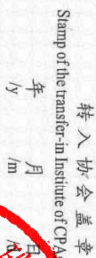 转入协会盖章
Stamp of the transfer-in Institute of CPA
年 月 日
/y /m